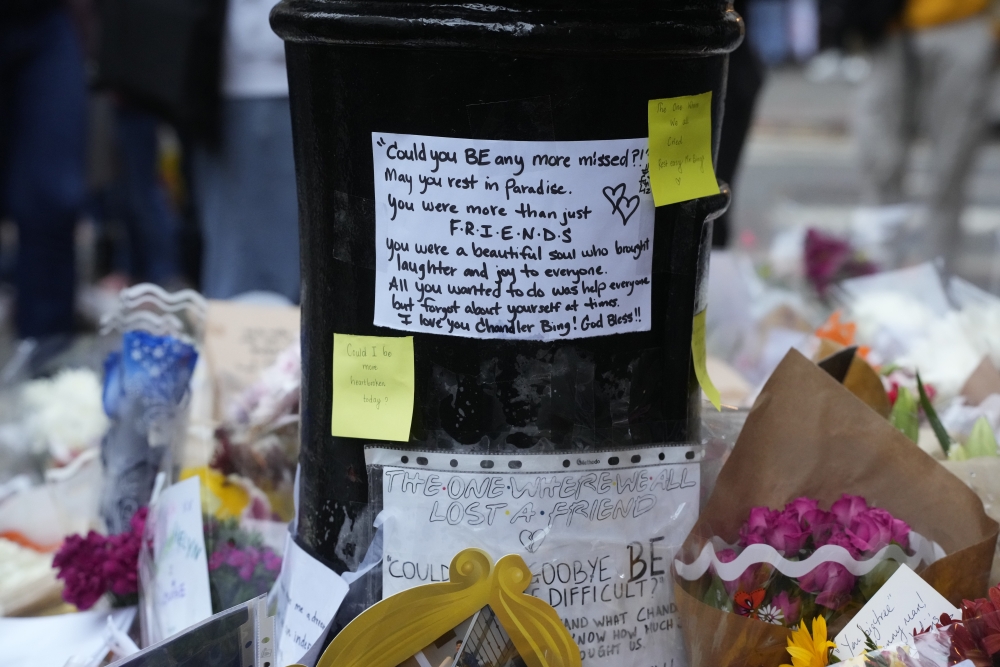 "Could you BE any more missed?!"
May you rest in Paradise.
You were more than just
F·R·I·E·N·D·S
You were a beautiful soul who brought
laughter and joy to everyone.
All you wanted to do was help everyone
but forgot about yourself at times.
I love you Chandler Bing! God Bless!!
The One Where
We all
Cried
Could I be
more
heartbroken
today?
THE·ONE·WHERE·WE·ALL
LOST·A·FRIEND
"COULD GOODBYE BE
DIFFICULT?"
AND WHAT CHAND
KNOW HOW MUCH
OUGHT US.